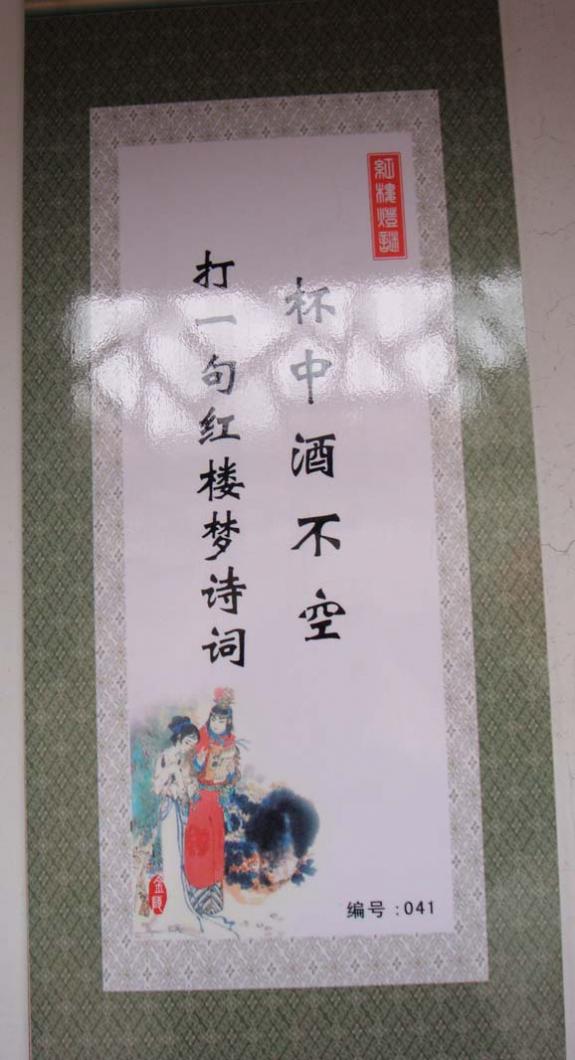 红楼灯谜
杯中酒不空
打一句红楼梦诗词
金陵
编号:041